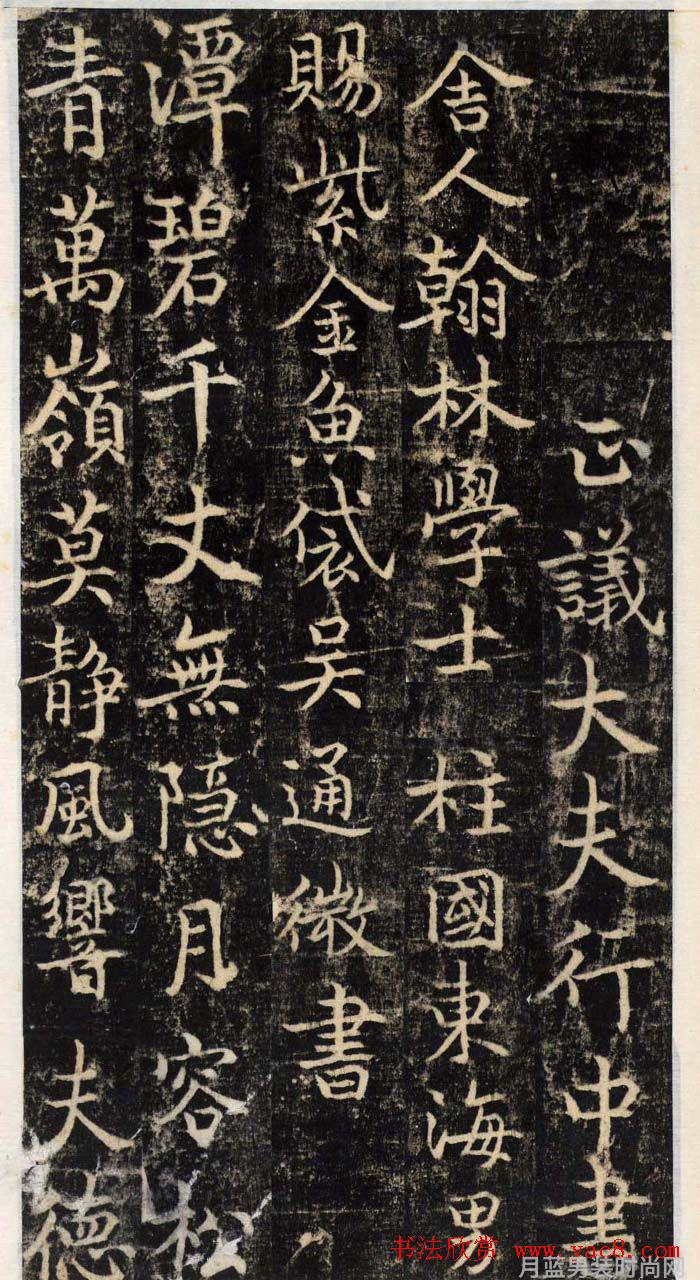 正議大夫行中書
舍人翰林學士 柱國東海男
賜紫金魚袋吴通微書
潭碧千丈無隐月容松
青萬嶺莫靜風響夫德
书法欣赏 www.yac8.com
月蓝男装时尚网